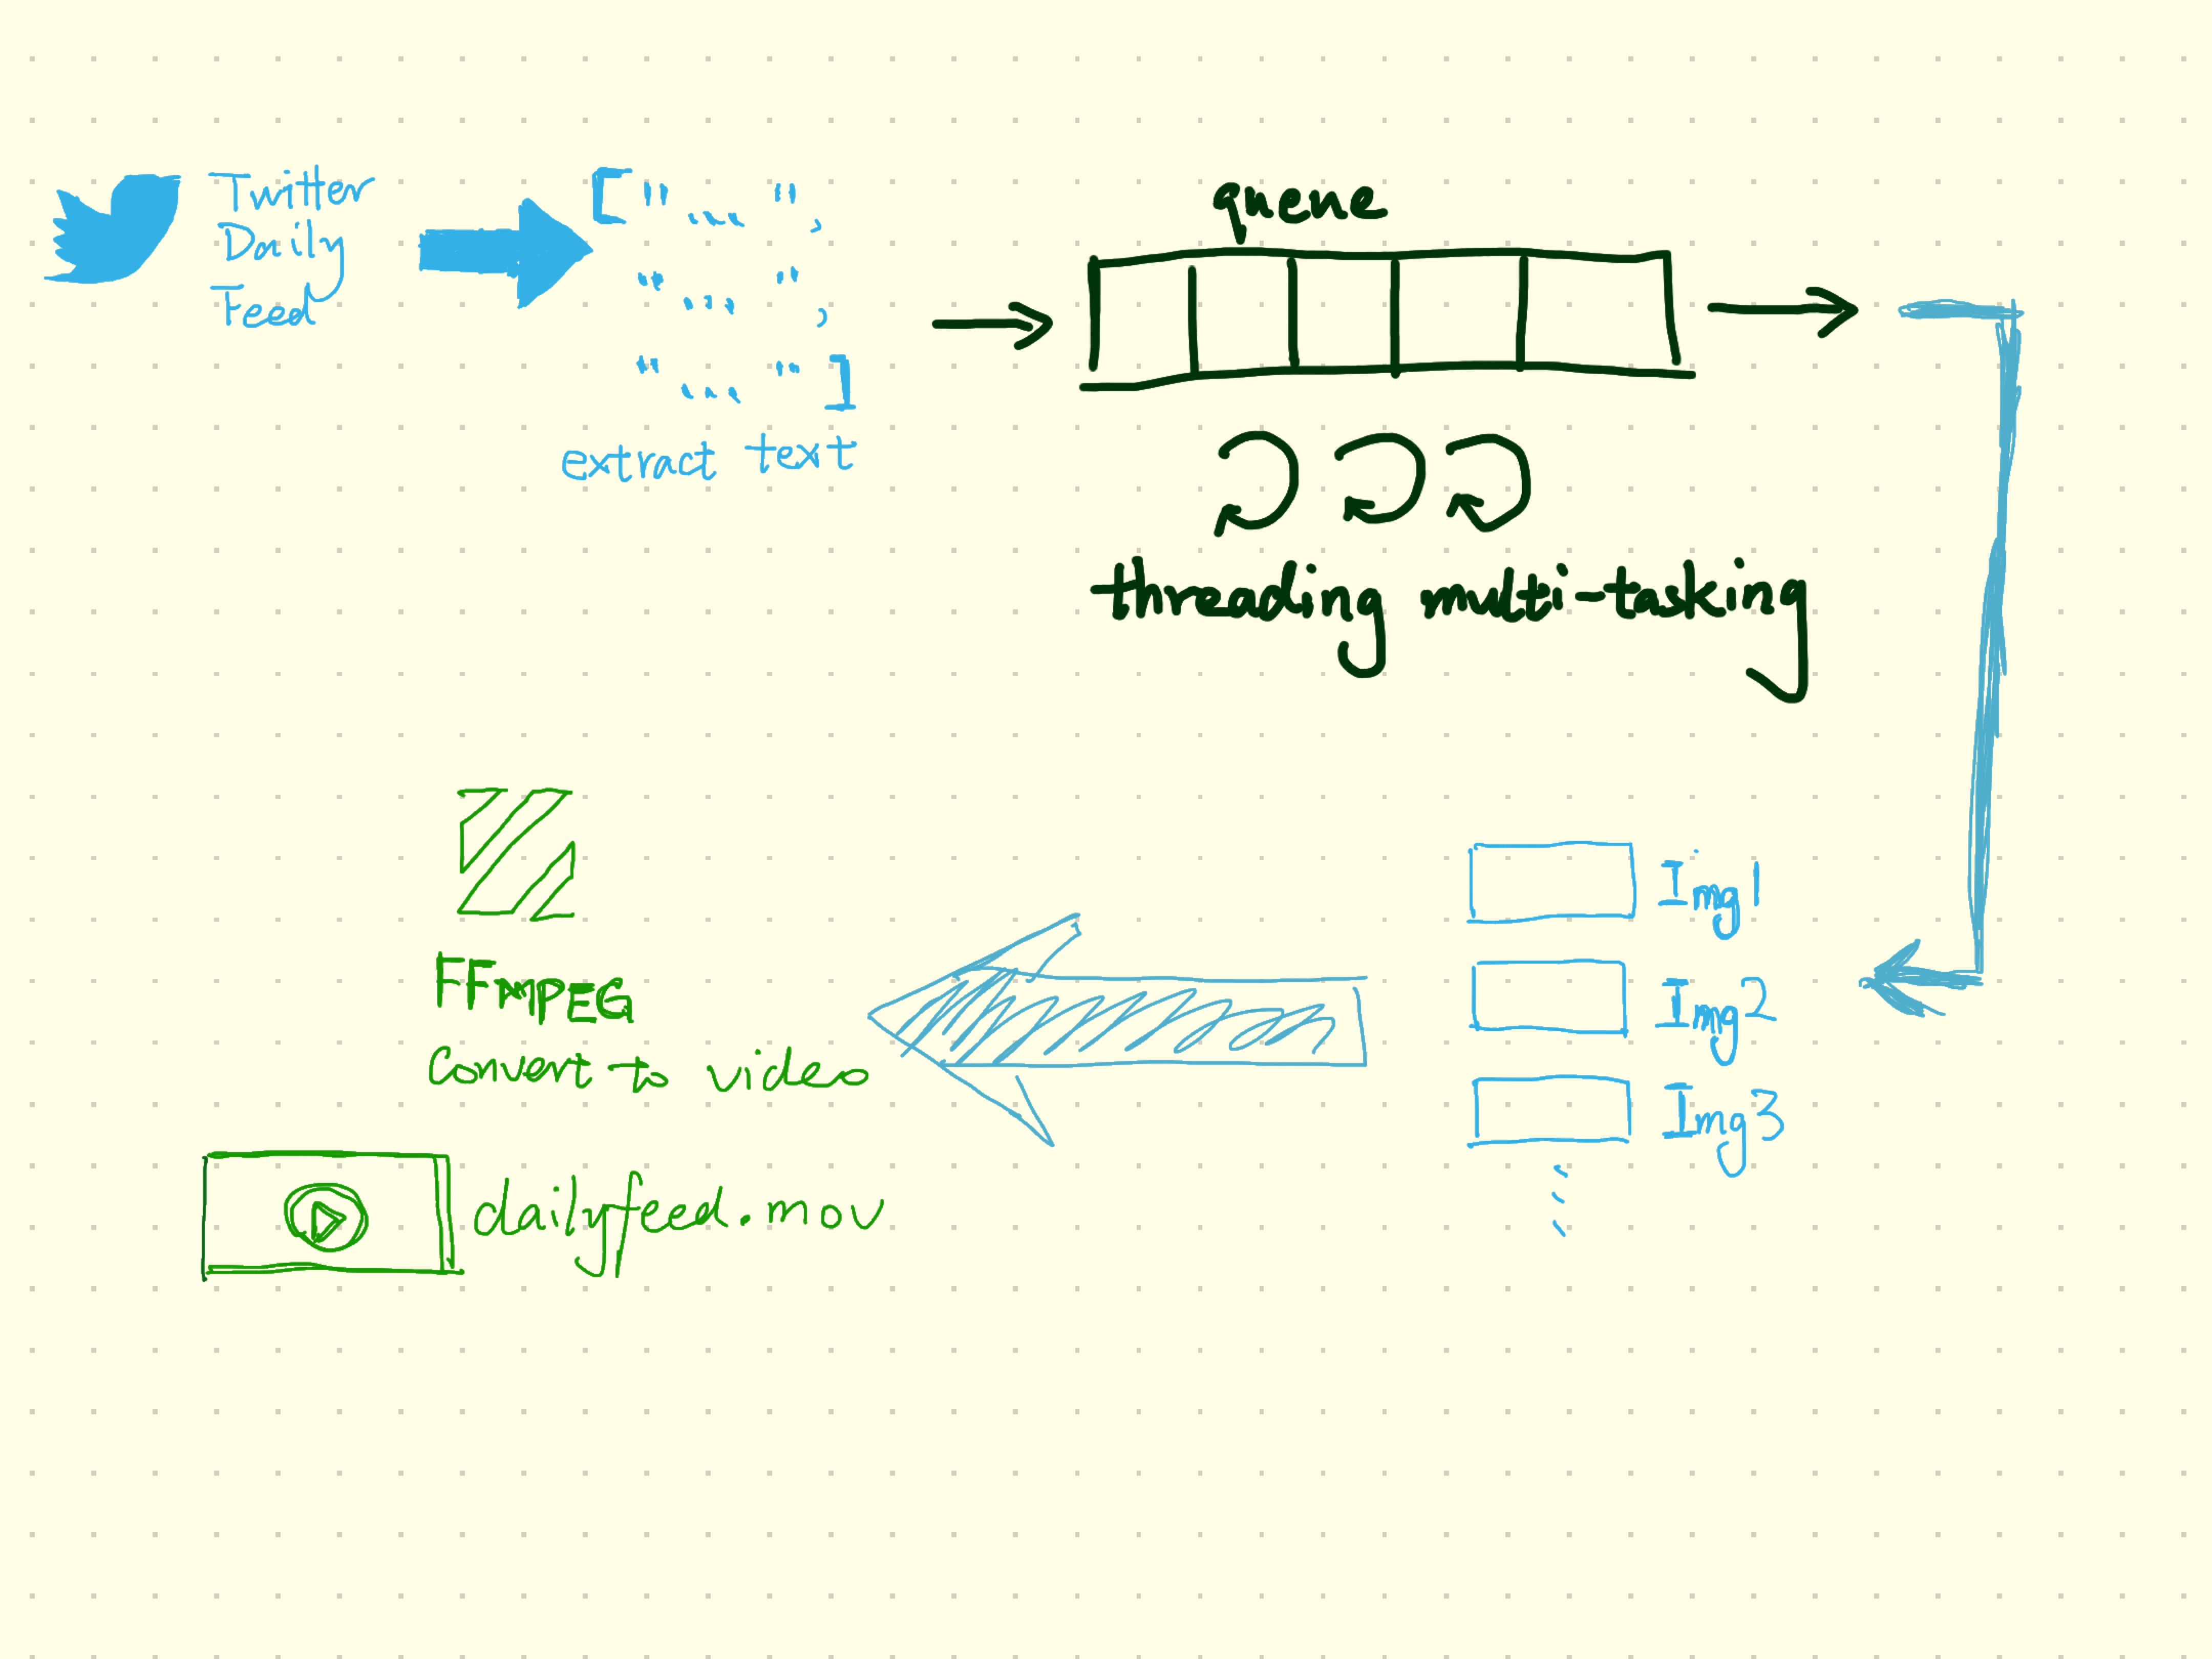 Twitter
Daily
Feed
["...",
"...",
"..."]
extract text
queue
threading multi-tasking
Img1
Img2
Img3
FFMPEG
Convert to video
dailyfeed.mov